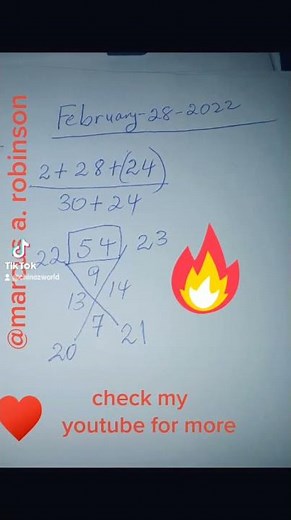 @marcus a. robinson
February-28-2022
2+28+(24)
30+24
22 54, 23
9
13 14
7
20 21
TikTok
check my
youtube for more